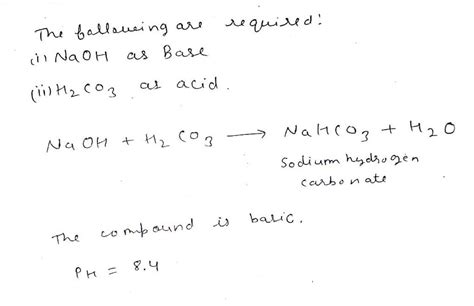 The following are required:
(i) NaOH as Base
(ii) H2CO3 as acid.
NaOH + H2CO3 ⟶ NaHCO3 + H2O
Sodium hydrogen
carbonate
The compound is basic.
PH = 8.4